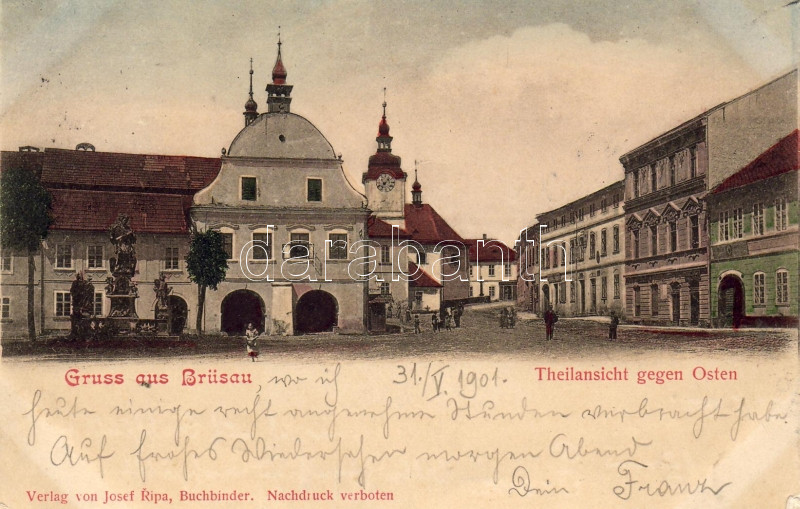 darabanth
Gruss aus Brüsau, wo ich 31./V. 1901. Theilansicht gegen Osten
heute einige recht angenehme Stunden verbracht habe.
Auf frohes Wiedersehen morgen Abend
Dein Franz
Verlag von Josef Řipa, Buchbinder. Nachdruck verboten